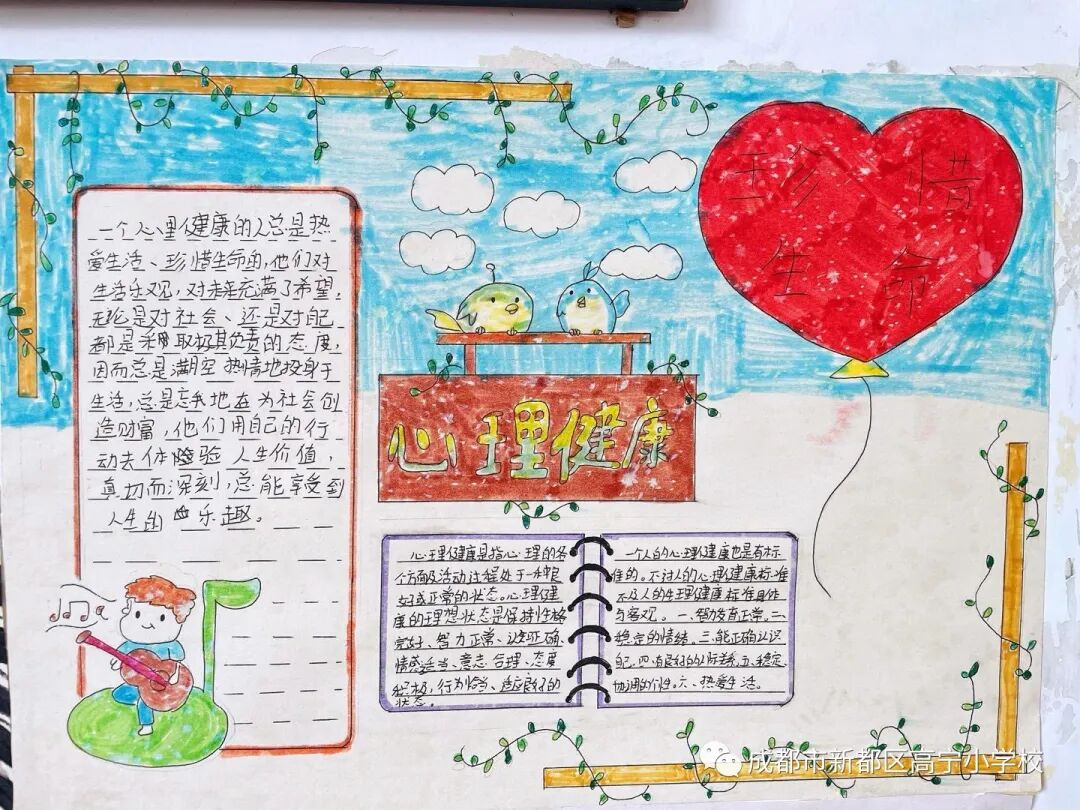 一个心理健康的人总是热
爱生活、珍惜生命的,他们对
生活乐观,对未来充满了希望。
无论是对社会、还是对自己
都是采取极其负责的态度,
因而总是满腔热情地投身于
生活,总是忘我地在为社会创
造财富,他们用自己的行
动去体验 人生价值,
真切而深刻,总能享受到
人生的 乐趣。
珍惜
生命
心理健康
心理健康是指心理的各
个方面及活动过程处于一种良
好或正常的状态。心理健
康的理想状态是保持性格
完好、智力正常、认知正确、
情感适当、意志合理、态度
积极,行为恰当、适应良好的
状态。
一个人的心理健康也是有标
准的。不过人的心理健康标准
不及人的生理健康标准具体
与客观。一、智力发育正常。二、
稳定的情绪。三、能正确认识
自己。四、有良好的人际关系。五、稳定、
协调的个性。六、热爱生活。
成都市新都区高宁小学校